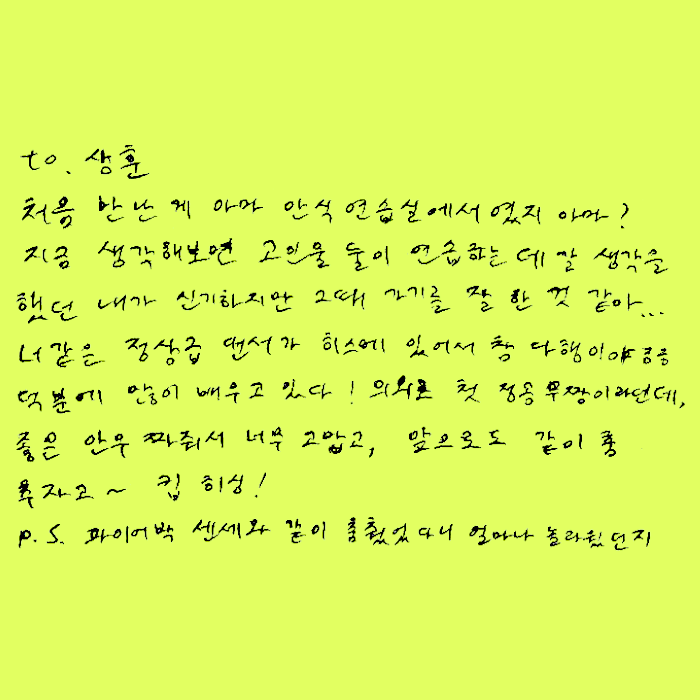 to. 상훈
처음 만난 게 아마 안식 연습실에서 였지 아마?
지금 생각해보면 고인물 둘이 연습하는 데 갈 생각을
했던 내가 신기하지만 그때 가기를 잘 한 것 같아...
너같은 정상급 댄서가 히스에 있어서 참 다행이야 ㅎㅎ
덕분에 많이 배우고 있다! 의외로 첫 정송 무짱이라던데,
좋은 안무 짜줘서 너무 고맙고, 앞으로도 같이 춤
추자고~ 킵 히싱!
p.s. 파이어박 센세와 같이 춤췄었다니 얼마나 놀라웠던지